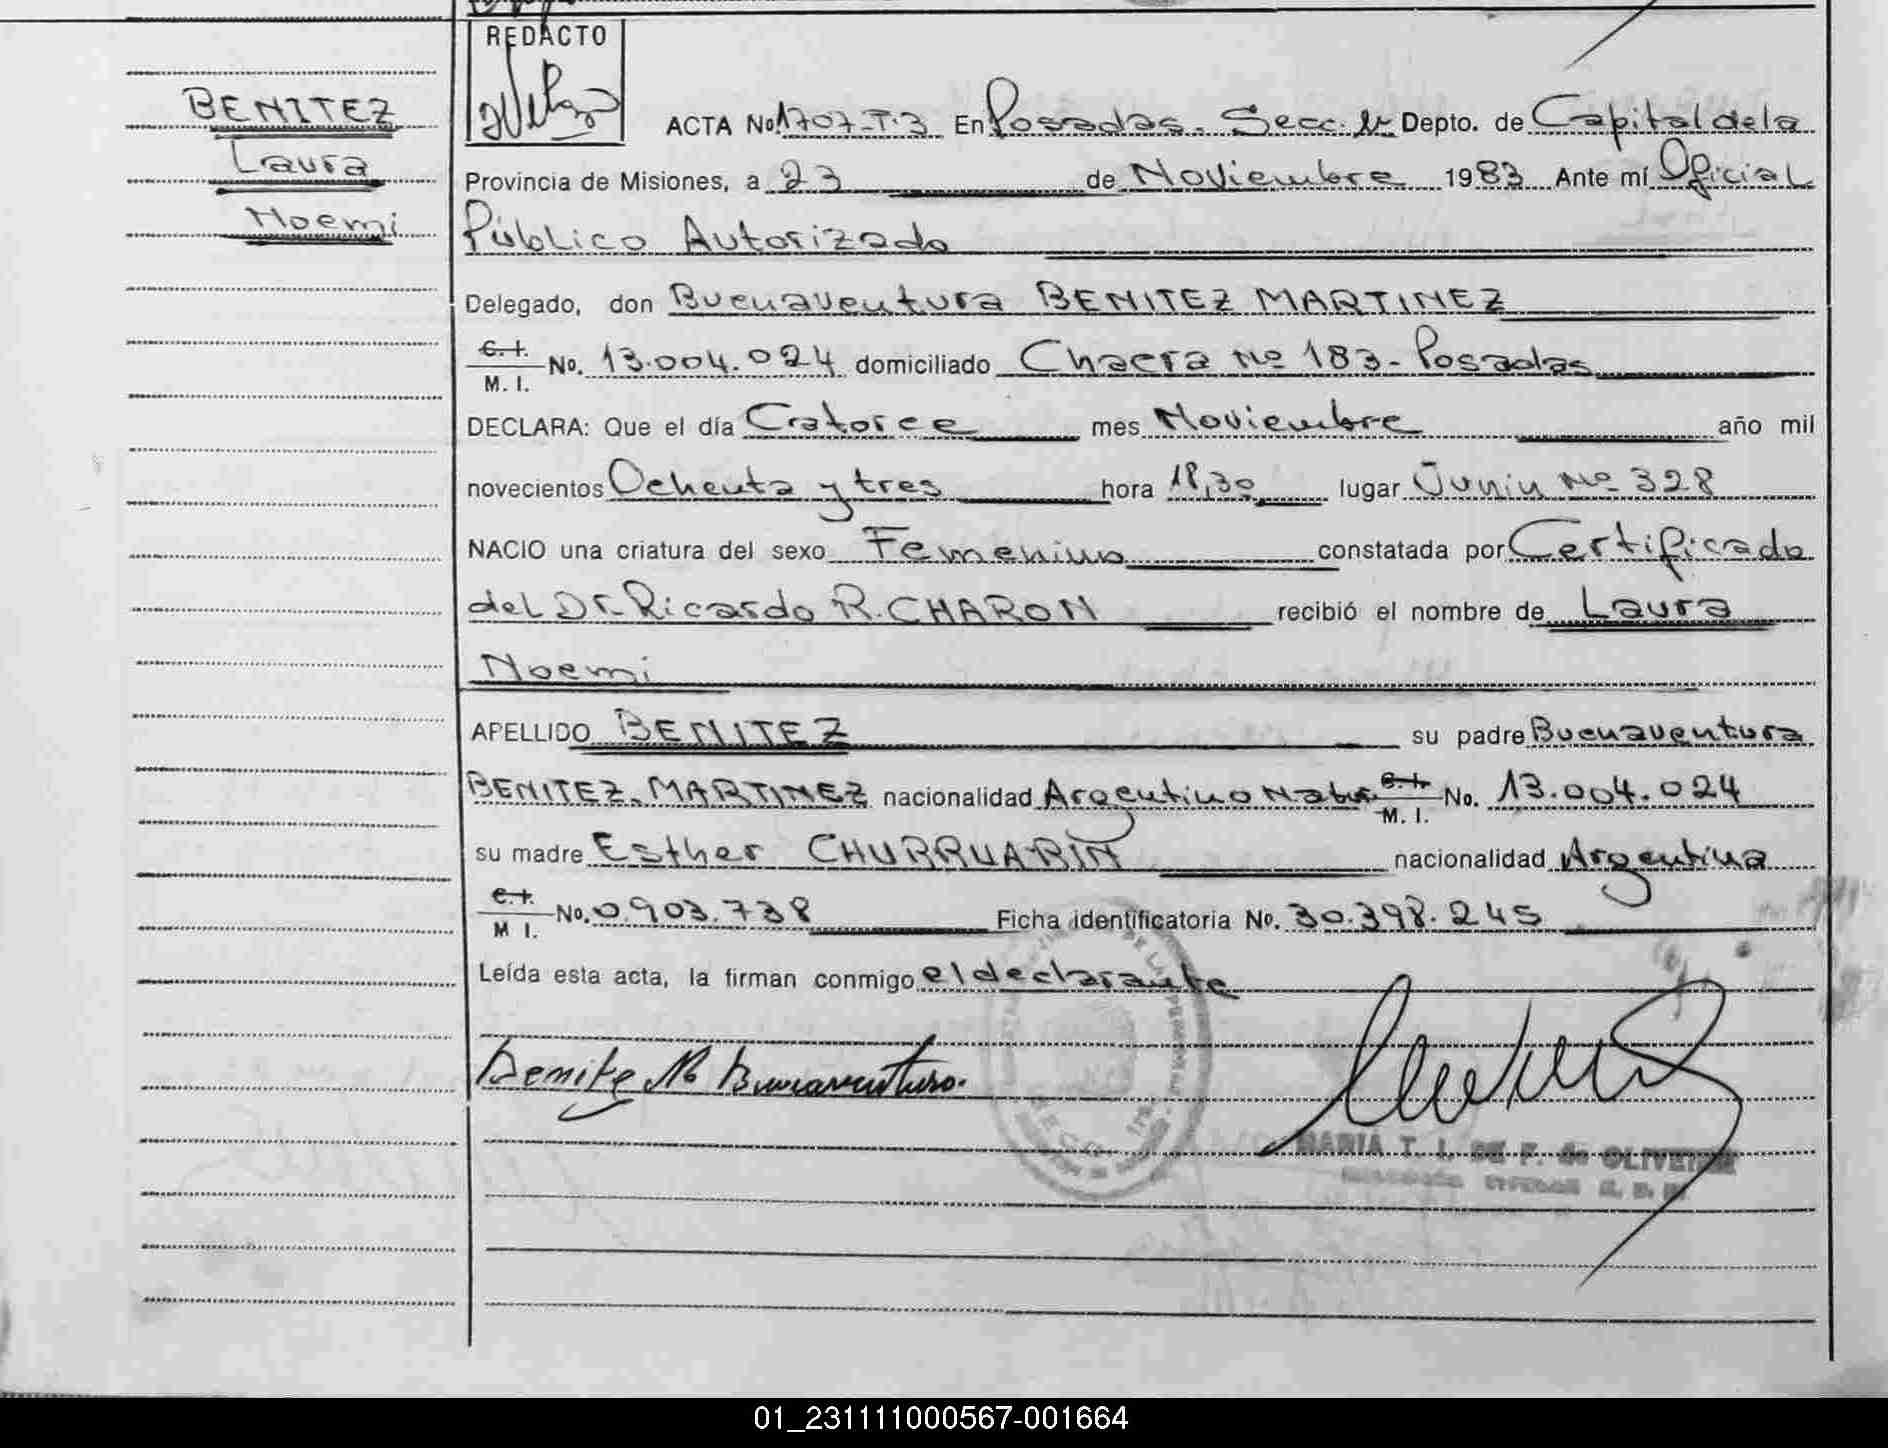 REDACTO
BENITEZ
Laura
Noemi
ACTA No. 1707-T.3 En Posadas. Secc. 1a Depto. de Capital de la
Provincia de Misiones, a 23 de Noviembre 1983 Ante mí Oficial
Público Autorizado
Delegado, don Buenaventura BENITEZ MARTINEZ
C. I. M. I. No. 13.004.024 domiciliado Chacra No 183- Posadas
DECLARA: Que el día Catorce mes Noviembre año mil
novecientos Ochenta y tres hora 18,30 lugar Junin No 328
NACIO una criatura del sexo Femenino constatada por Certificado
del Dr. Ricardo R. CHARON recibió el nombre de Laura
Noemi
APELLIDO BENITEZ su padre Buenaventura
BENITEZ. MARTINEZ nacionalidad Argentino Natur. C. I. M. I. No. 13.004.024
su madre Esther CHURRUARIN nacionalidad Argentina
C. I. M I. No. 0.903.738 Ficha identificatoria No. 30.398.245
Leída esta acta, la firman conmigo el declarante
Benitez M Buenaventura.
MARIA T. I. DE F. de OLIVEIRA
01_231111000567-001664